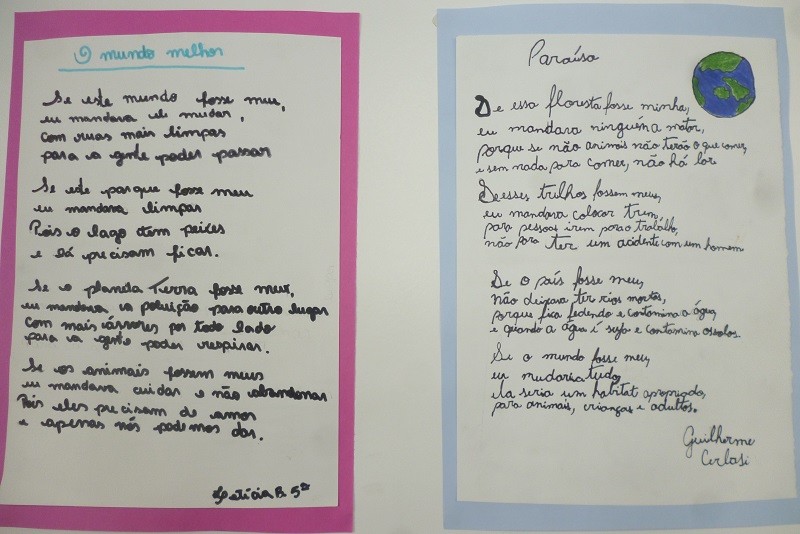 O mundo melhor
Se este mundo fosse meu,
eu mandava ele mudar,
com ruas mais limpas
para a gente poder passar
Se este parque fosse meu
eu mandava limpar
Pois o lago tem peixes
e lá precisam ficar.
Se o planeta Terra fosse meu,
eu mandava a poluição para outro lugar
com mais árvores por todo lado
para a gente poder respirar.
Se os animais fossem meus
eu mandava cuidar e não abandonar
Pois eles precisam de amor
e apenas nós podemos dar.
Letícia B. 5º
Paraíso
Se essa floresta fosse minha,
eu mandava ninguém a matar,
porque se não animais não terão o que comer,
e sem nada para comer, não há lar
Se esses trilhos fossem meus,
eu mandava colocar trem,
para pessoas irem para o trabalho,
não para ter um acidente com um homem
Se o país fosse meu,
não deixava ter rios mortos,
porque fica fedendo e contamina a água,
e quando a água é suja e contamina os solos.
Se o mundo fosse meu,
eu mudaria tudo,
ela seria um habitat apropriado,
para animais, crianças e adultos.
Guilherme
Cerlasi